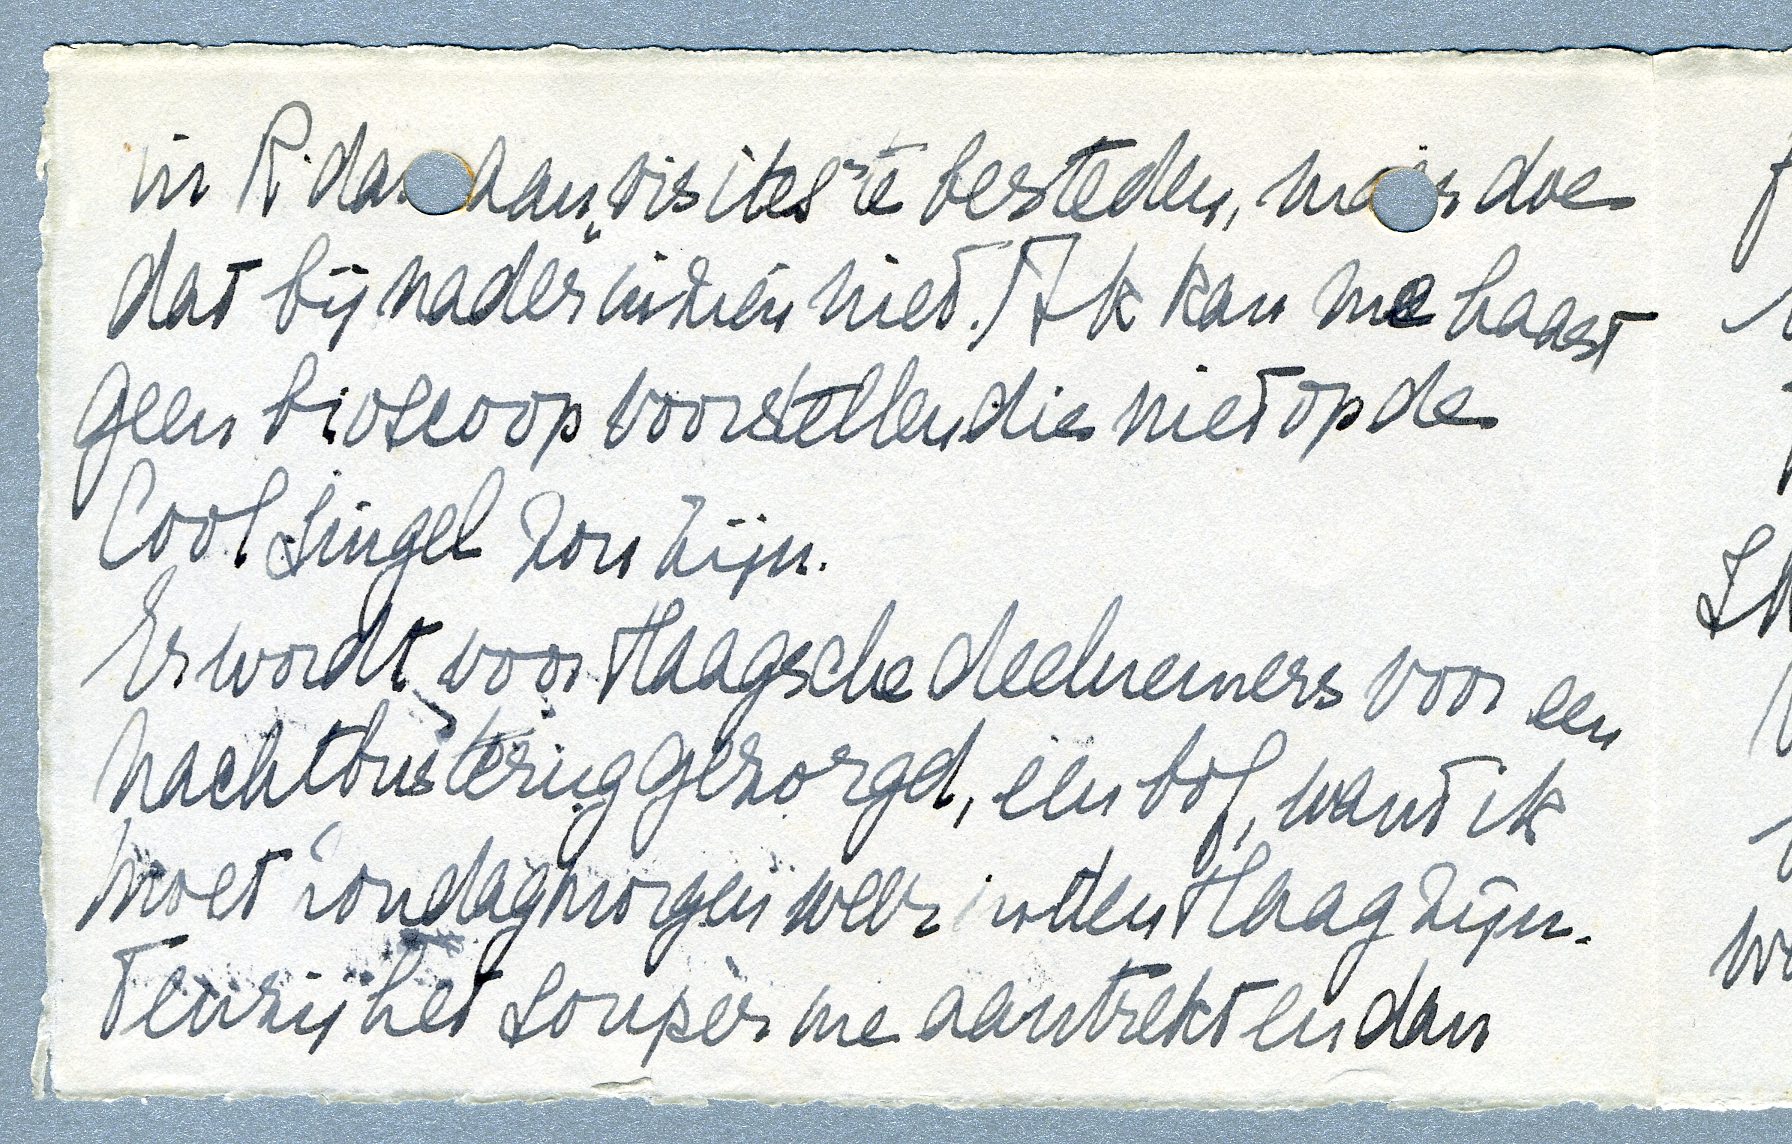 in R'dam aan „visites” te besteden, maar doe
dat bij nader inzien niet.) Ik kan me haast
geen bioscoop voorstellen die niet op de
Cool Singel zou zijn.
Er wordt voor Haagsche deelnemers voor een
nachtbus terug gezorgd, een bof, want ik
moet Zondagmorgen weer in den Haag zijn.
Tenzij het souper me aantrekt en dan